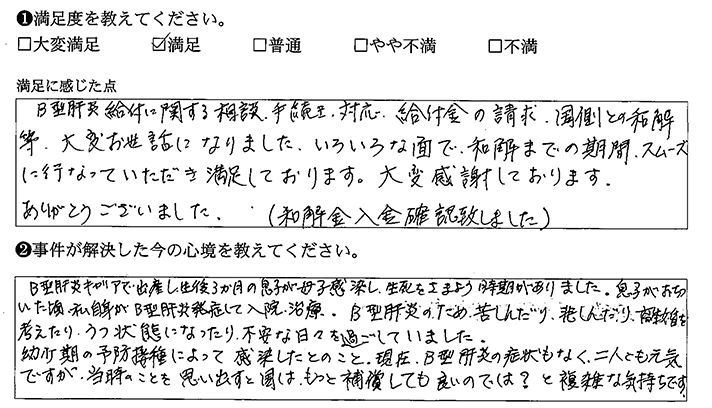 ❶満足度を教えてください。
□大変満足 ☑満足 □普通 □やや不満 □不満
満足に感じた点
B型肝炎給付に関する相談、手続き、対応、給付金の請求、国側との和解
等、大変お世話になりました。いろいろな面で、和解までの期間、スムーズ
に行なっていただき満足しております。大変感謝しております。
ありがとうございました。 (和解金入金確認致しました)
❷事件が解決した今の心境を教えてください。
B型肝炎キャリアで出産し生後3か月の息子が母子感染し、生死をさまよう時期がありました。息子がおちつ
いた頃、私自身がB型肝炎発症して入院、治療。B型肝炎のため、苦しんだり、悲しんだり、離婚を
考えたり、うつ状態になったり、不安な日々を過ごしていました。
幼少期の予防接種によって感染したとのこと、現在、B型肝炎の症状もなく、二人とも元気
ですが、当時のことを思い出すと国は、もっと補償しても良いのでは？と複雑な気持ちです。